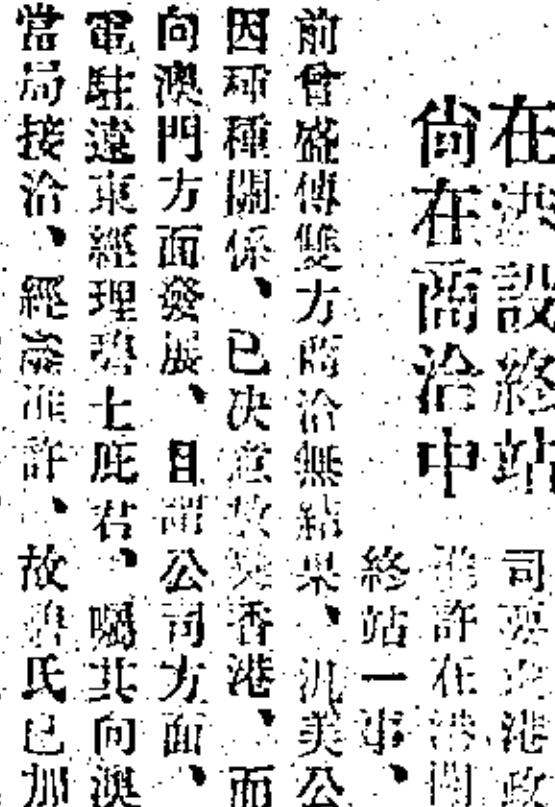 在港設終站
尚在商洽中
司要求港政
准許在港開
終站一事、
前曾盛傳雙方商洽無結果、汎美公
因種種關係、已决意放棄香港、而
向澳門方面發展、目謂公司方面、
電駐遠東經理碧士庇君、囑其向澳
當局接洽、經蒙准許、故碧氏已加